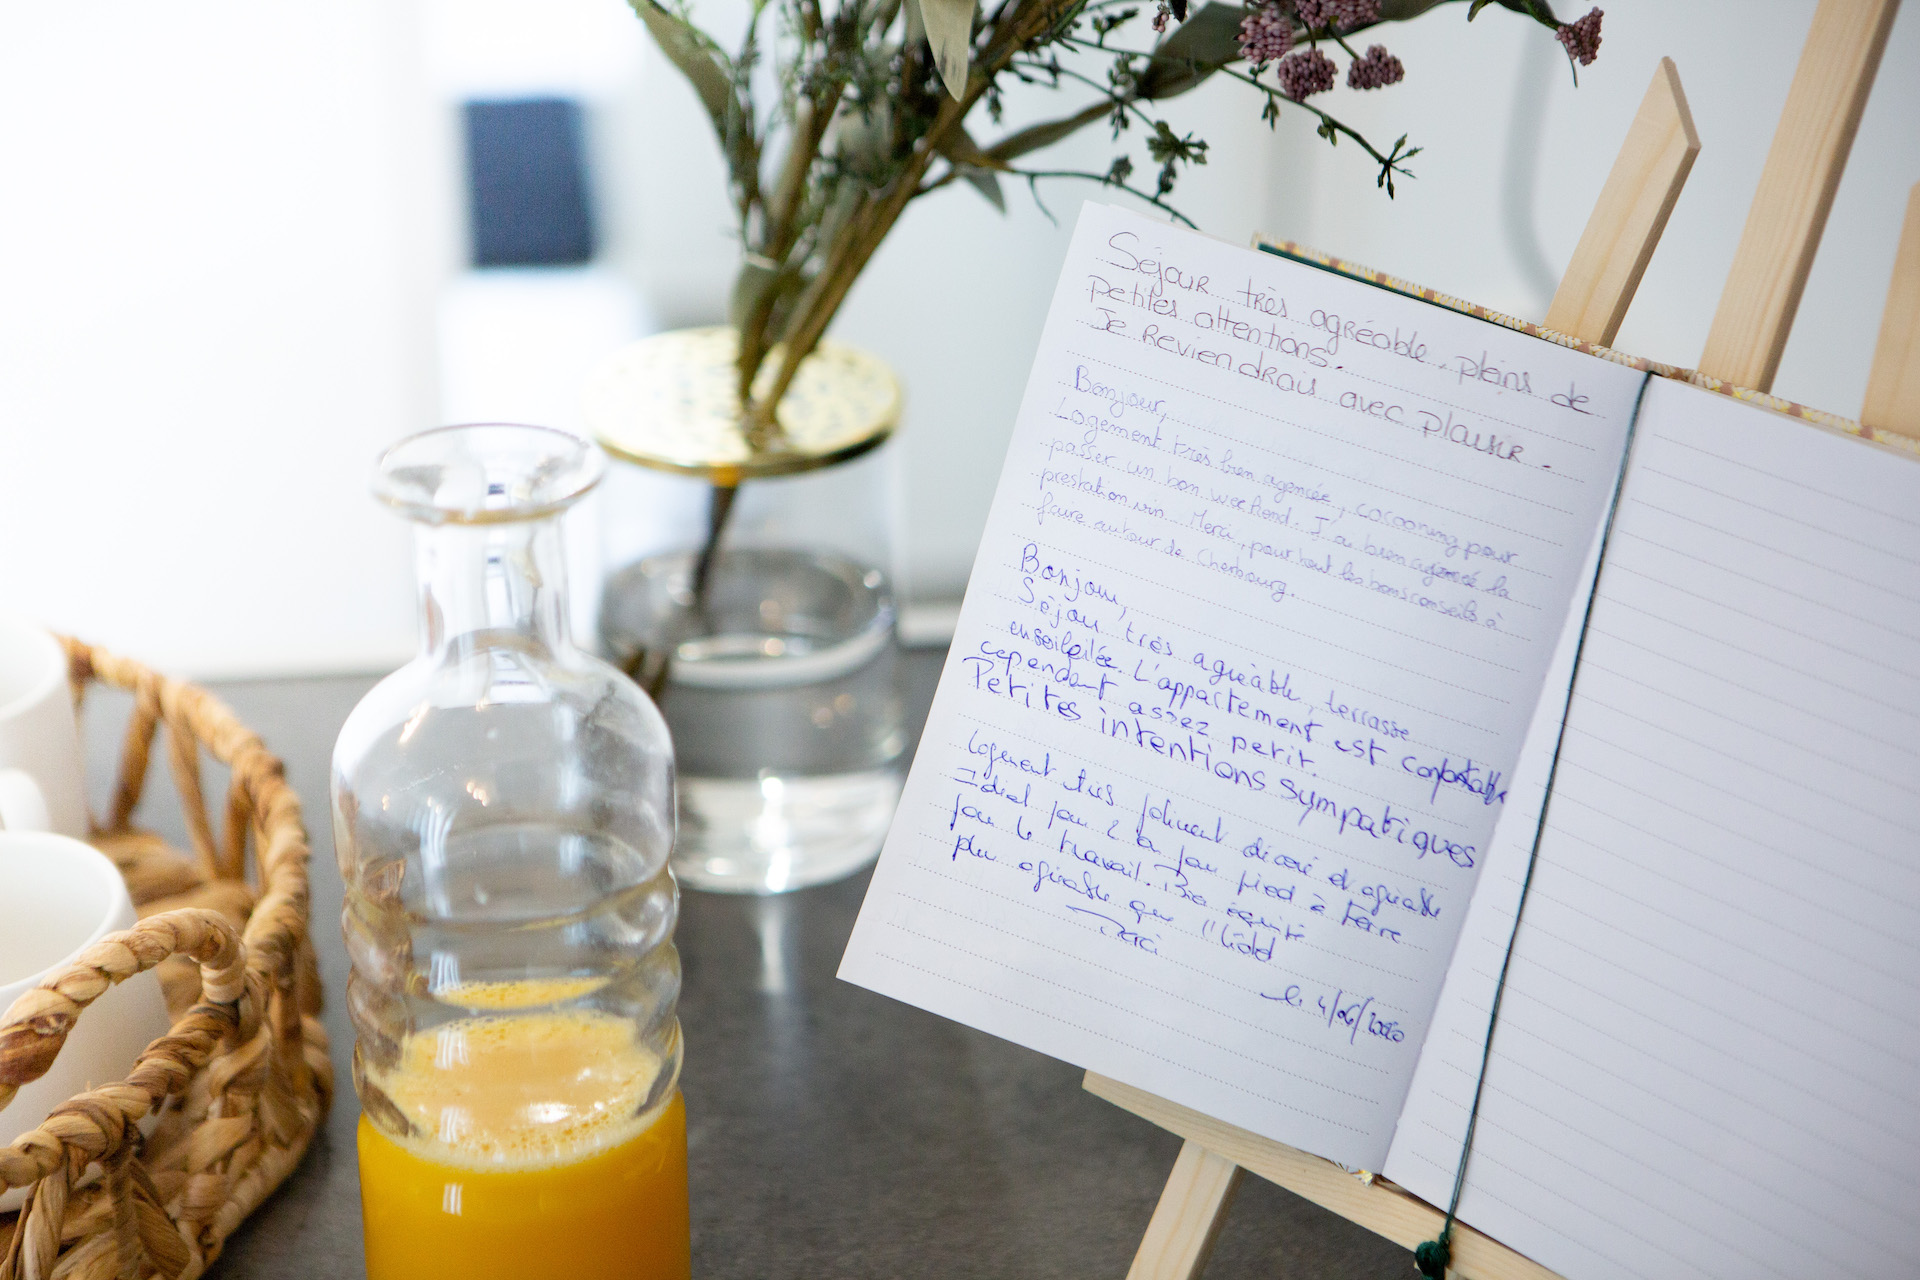 Séjour très agréable, pleins de
petites attentions.
Je Reviendrais avec plaisir.
Bonjour,
Logement très bien agencée, cocooning pour
passer un bon weekend. J'ai bien la
prestation vin. Merci, pour tout les bons conseils à
faire autour de Cherbourg.
Bonjour,
Séjour très agréable, terrasse
ensoleilée. L'appartement est confortable
cependant assez petit.
Petites intentions sympatiques
Logement très joliment décoré et agréable
Idéal pour 2 à pour pied à terre
pour le travail. Bien équipé
plus agréable que l'hôtel
Merci
le 4/06/2020